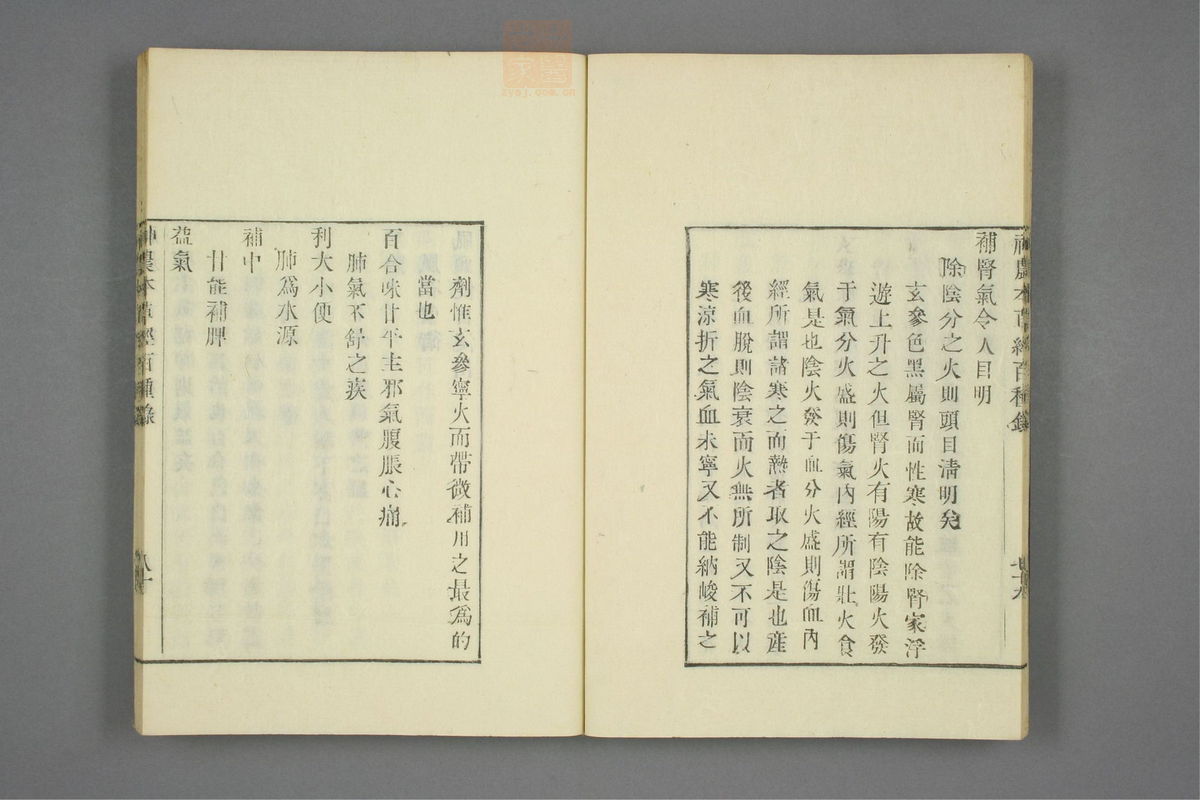 補腎氣令人目明
除陰分之火則頭目淸明矣
玄參色黑屬腎而性寒故能除腎家浮
遊上升之火但腎火有陽有陰陽火發
于氣分火盛則傷氣內經所謂壯火食
氣是也陰火發于血分火盛則傷血內
經所謂諸寒之而熱者取之陰是也產
後血脫則陰衰而火無所制又不可以
寒涼折之氣血未寧又不能納峻補之
劑惟玄參寧火而帶微補用之最爲的
當也
百合味甘平主邪氣腹脹心痛
肺氣不舒之疾
利大小便
肺爲水源
補中
甘能補脾
益氣
神農本草經百種錄
zysj.com.cn